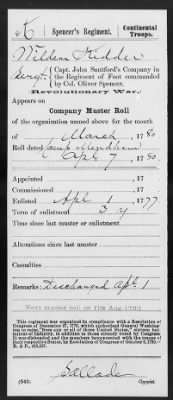 K | Spencer's Regiment. | Continental Troops.
Wildean Kidder
Sergt., Capt. John Santford's Company in
the Regiment of Foot commanded
by Col. Oliver Spencer.
Revolutionary War.
Appears on
Company Muster Roll
of the organization named above for the month
of March, 1780
Roll dated Camp Mendham
Apr. 7, 1780
Appointed , 17
Commissioned , 17
Enlisted Apl. 1, 1777
Term of enlistment 3 y
Time since last muster or enlistment
Alterations since last muster
Casualties
Remarks: Discharged Apl. 1
Next muster roll on file Aug. 1780
This regiment was organized in compliance with a Resolution
Copyist.